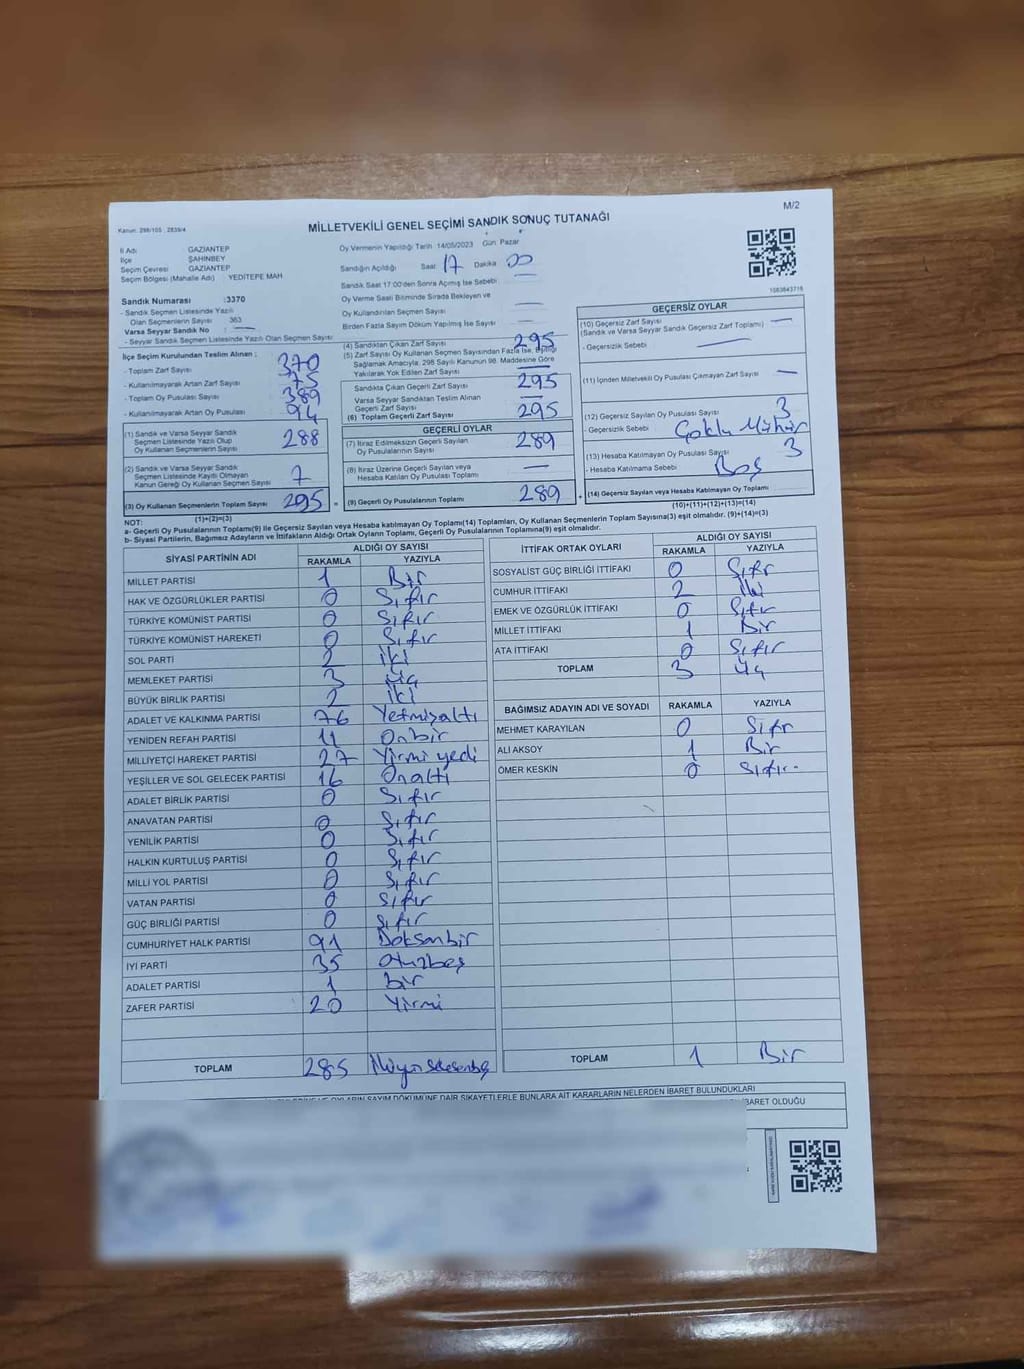 M/2
Kanun: 298/105 , 2839/4
MİLLETVEKİLİ GENEL SEÇİMİ SANDIK SONUÇ TUTANAĞI
İl Adı GAZİANTEP
İlçe ŞAHİNBEY
Seçim Çevresi GAZİANTEP
Seçim Bölgesi (Mahalle Adı) YEDİTEPE MAH
Sandık Numarası :3370
- Sandık Seçmen Listesinde Yazılı
Olan Seçmenlerin Sayısı 363
Varsa Seyyar Sandık No :
- Seyyar Sandık Seçmen Listesinde Yazılı Olan Seçmen Sayısı
İlçe Seçim Kurulundan Teslim Alınan :
- Toplam Zarf Sayısı 370
- Kullanılmayarak Artan Zarf Sayısı 75
- Toplam Oy Pusulası Sayısı 389
- Kullanılmayarak Artan Oy Pusulası 94
(1) Sandık ve Varsa Seyyar Sandık
Seçmen Listesinde Yazılı Olup
Oy Kullanan Seçmenlerin Sayısı 288
(2) Sandık ve Varsa Seyyar Sandık
Seçmen Listesinde Kayıtlı Olmayan
Kanun Gereği Oy Kullanan Seçmen Sayısı 7
(3) Oy Kullanan Seçmenlerin Toplam Sayısı 295 =
(1)+(2)=(3)
Oy Vermenin Yapıldığı Tarih 14/05/2023 Gün Pazar
Sandığın Açıldığı Saat 17 Dakika 00
Sandık Saat 17:00'den Sonra Açılmış İse Sebebi
Oy Verme Saati Bitiminde Sırada Bekleyen ve
Oy Kullandırılan Seçmen Sayısı
Birden Fazla Sayım Döküm Yapılmış İse Sayısı
(4) Sandıktan Çıkan Zarf Sayısı 295
(5) Zarf Sayısı Oy Kullanan Seçmen Sayısından Fazla İse, Eşitliği
Sağlamak Amacıyla, 298 Sayılı Kanunun 98. Maddesine Göre
Yakılarak Yok Edilen Zarf Sayısı
Sandıkta Çıkan Geçerli Zarf Sayısı 295
Varsa Seyyar Sandıktan Teslim Alınan
Geçerli Zarf Sayısı
(6) Toplam Geçerli Zarf Sayısı 295
GEÇERLİ OYLAR
(7) İtiraz Edilmeksizin Geçerli Sayılan
Oy Pusulalarının Sayısı 289
(8) İtiraz Üzerine Geçerli Sayılan veya
Hesaba Katılan Oy Pusulası Toplamı
(9) Geçerli Oy Pusulalarının Toplamı 289 +
1083643716
GEÇERSİZ OYLAR
(10) Geçersiz Zarf Sayısı
(Sandık ve Varsa Seyyar Sandık Geçersiz Zarf Toplamı)
- Geçersizlik Sebebi :
(11) İçinden Milletvekili Oy Pusulası Çıkmayan Zarf Sayısı
(12) Geçersiz Sayılan Oy Pusulası Sayısı 3
- Geçersizlik Sebebi Çoklu Mühür
(13) Hesaba Katılmayan Oy Pusulası Sayısı 3
- Hesaba Katılmama Sebebi Boş
(14) Geçersiz Sayılan veya Hesaba Katılmayan Oy Toplamı
(10)+(11)+(12)+(13)=(14)
NOT:
a- Geçerli Oy Pusulalarının Toplamı(9) ile Geçersiz Sayılan veya Hesaba katılmayan Oy Toplamı(14) Toplamları, Oy Kullanan Seçmenlerin Toplam Sayısına(3) eşit olmalıdır. (9)+(14)=(3)
b- Siyasi Partilerin, Bağımsız Adayların ve İttifakların Aldığı Ortak Oyların Toplamı, Geçerli Oy Pusulalarının Toplamına(9) eşit olmalıdır.
SİYASİ PARTİNİN ADI ALDIĞI OY SAYISI
RAKAMLA YAZIYLA
MİLLET PARTİSİ 1 Bir
HAK VE ÖZGÜRLÜKLER PARTİSİ 0 Sıfır
TÜRKİYE KOMÜNİST PARTİSİ 0 Sıfır
TÜRKİYE KOMÜNİST HAREKETİ 0 Sıfır
SOL PARTİ 2 iki
MEMLEKET PARTİSİ 3 üç
BÜYÜK BİRLİK PARTİSİ 2 iki
ADALET VE KALKINMA PARTİSİ 76 Yetmişaltı
YENİDEN REFAH PARTİSİ 11 Onbir
MİLLİYETÇİ HAREKET PARTİSİ 27 Yirmi yedi
YEŞİLLER VE SOL GELECEK PARTİSİ 16 Onaltı
ADALET BİRLİK PARTİSİ 0 Sıfır
ANAVATAN PARTİSİ 0 Sıfır
YENİLİK PARTİSİ 0 Sıfır
HALKIN KURTULUŞ PARTİSİ 0 Sıfır
MİLLİ YOL PARTİSİ 0 Sıfır
VATAN PARTİSİ 0 Sıfır
GÜÇ BİRLİĞİ PARTİSİ 0 Sıfır
CUMHURİYET HALK PARTİSİ 91 Doksanbir
İYİ PARTİ 35 otuzbeş
ADALET PARTİSİ 1 bir
ZAFER PARTİSİ 20 Yirmi
TOPLAM 285 İkiyüzseksenbeş
İTTİFAK ORTAK OYLARI ALDIĞI OY SAYISI
RAKAMLA YAZIYLA
SOSYALİST GÜÇ BİRLİĞİ İTTİFAKI 0 Sıfır
CUMHUR İTTİFAKI 2 İki
EMEK VE ÖZGÜRLÜK İTTİFAKI 0 Sıfır
MİLLET İTTİFAKI 1 Bir
ATA İTTİFAKI 0 Sıfır
TOPLAM 3 Üç
BAĞIMSIZ ADAYIN ADI VE SOYADI RAKAMLA YAZIYLA
MEHMET KARAYILAN 0 Sıfır
ALİ AKSOY 1 Bir
ÖMER KESKİN 0 Sıfır
TOPLAM 1 Bir
OYLARIN SAYIM DÖKÜMÜNE DAİR ŞİKAYETLERLE BUNLARA AİT KARARLARIN NELERDEN İBARET BULUNDUKLARI
İBARET OLDUĞU